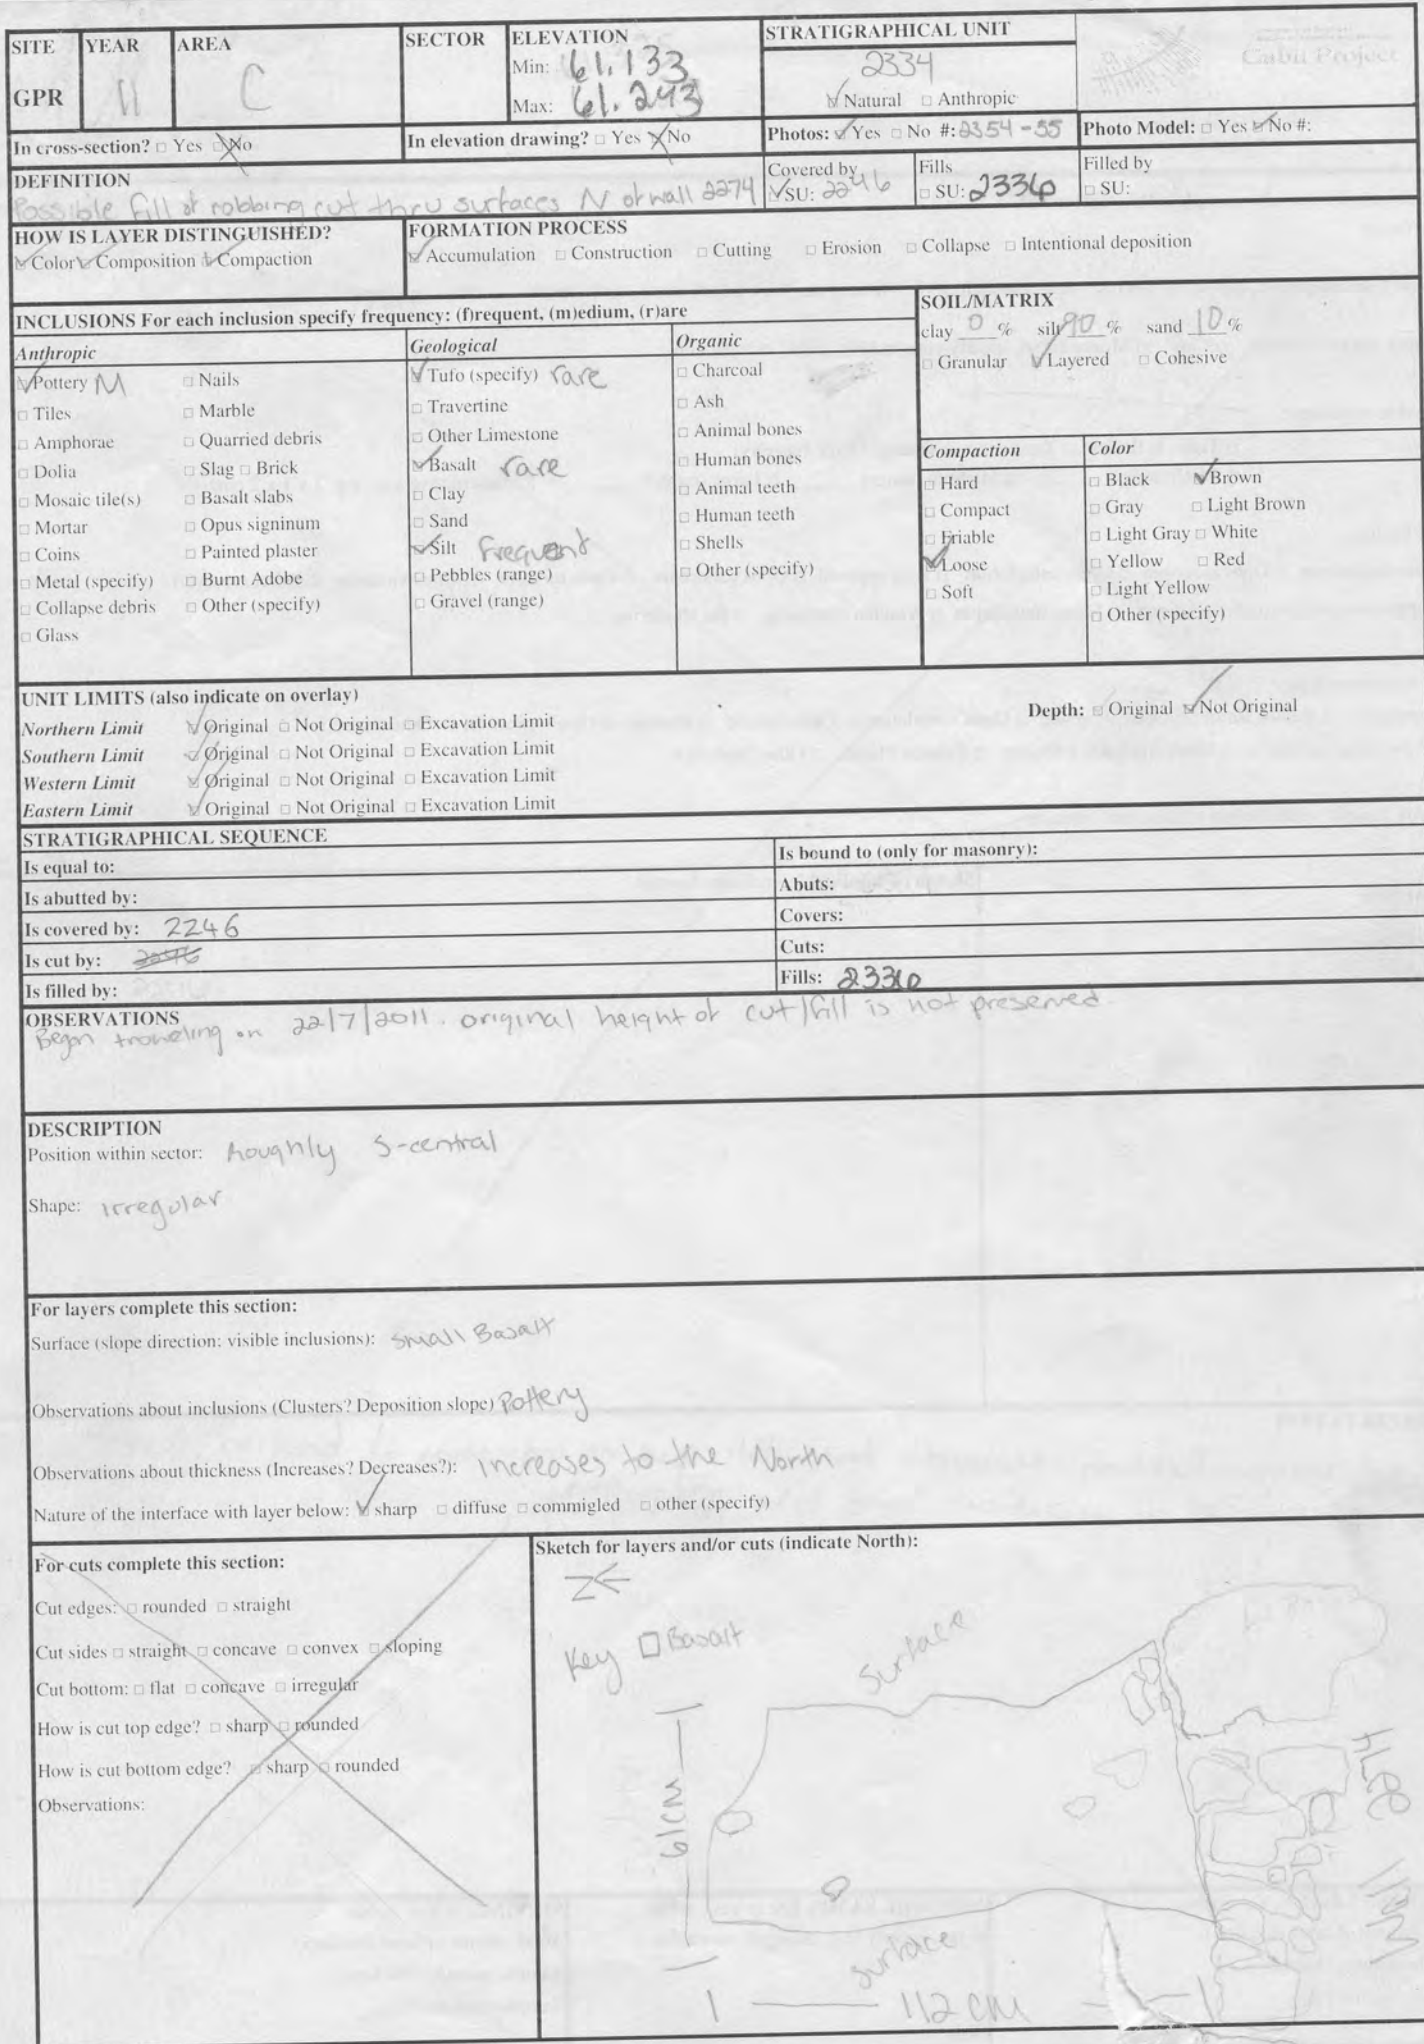 SITE YEAR AREA SECTOR ELEVATION STRATIGRAPHICAL UNIT
GPR 11 C Min: 61.133 2334 Gabii Project
Max: 61.243 ☑ Natural □ Anthropic
In cross-section? □ Yes ☒ No In elevation drawing? □ Yes ☒ No Photos: ☑ Yes □ No #: 2354-55 Photo Model: □ Yes ☑ No #:
DEFINITION Covered by Fills Filled by
Possible fill of robbing cut thru surfaces N of wall 2274 ☑ SU: 2246 □ SU: 2336 □ SU:
HOW IS LAYER DISTINGUISHED? FORMATION PROCESS
☑ Color ☑ Composition ☑ Compaction ☑ Accumulation □ Construction □ Cutting □ Erosion □ Collapse □ Intentional deposition
INCLUSIONS For each inclusion specify frequency: (f)requent, (m)edium, (r)are
Anthropic
☑ Pottery M □ Nails
□ Tiles □ Marble
□ Amphorae □ Quarried debris
□ Dolia □ Slag □ Brick
□ Mosaic tile(s) □ Basalt slabs
□ Mortar □ Opus signinum
□ Coins □ Painted plaster
□ Metal (specify) □ Burnt Adobe
□ Collapse debris □ Other (specify)
□ Glass
Geological
☑ Tufo (specify) rare
□ Travertine
□ Other Limestone
☑ Basalt rare
□ Clay
□ Sand
☑ Silt frequent
□ Pebbles (range)
□ Gravel (range)
Organic
□ Charcoal
□ Ash
□ Animal bones
□ Human bones
□ Animal teeth
□ Human teeth
□ Shells
□ Other (specify)
SOIL/MATRIX
clay 0 % silt 90 % sand 10 %
□ Granular ☑ Layered □ Cohesive
Compaction
□ Hard
□ Compact
□ Friable
☑ Loose
□ Soft
Color
□ Black ☑ Brown
□ Gray □ Light Brown
□ Light Gray □ White
□ Yellow □ Red
□ Light Yellow
□ Other (specify)
UNIT LIMITS (also indicate on overlay)
Depth: □ Original ☑ Not Original
Northern Limit ☑ Original □ Not Original □ Excavation Limit
Southern Limit ☑ Original □ Not Original □ Excavation Limit
Western Limit ☑ Original □ Not Original □ Excavation Limit
Eastern Limit ☑ Original □ Not Original □ Excavation Limit
STRATIGRAPHICAL SEQUENCE
Is equal to: Is bound to (only for masonry):
Is abutted by: Abuts:
Is covered by: 2246 Covers:
Is cut by: Cuts:
Is filled by: Fills: 2336
OBSERVATIONS
Began troweling on 22/7/2011. original height of cut/fill is not preserved.
DESCRIPTION
Position within sector: Roughly S-central
Shape: Irregular
For layers complete this section:
Surface (slope direction: visible inclusions): Small Basalt
Observations about inclusions (Clusters? Deposition slope) Pottery
Observations about thickness (Increases? Decreases?): Increases to the North
Nature of the interface with layer below: ☑ sharp □ diffuse □ commigled □ other (specify)
For cuts complete this section:
Cut edges: □ rounded □ straight
Cut sides □ straight □ concave □ convex □ sloping
Cut bottom: □ flat □ concave □ irregular
How is cut top edge? □ sharp □ rounded
How is cut bottom edge? □ sharp □ rounded
Observations:
Sketch for layers and/or cuts (indicate North):
N
Key □ Basalt
Surface
61cm
Wall 2274
Surface
112 cm